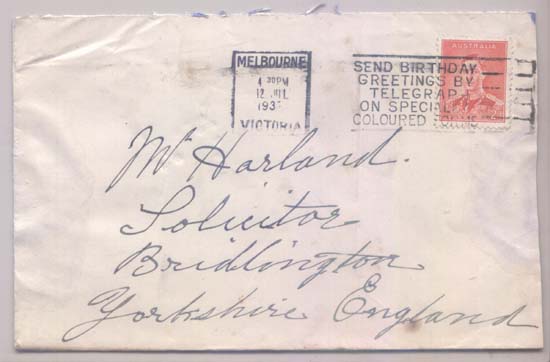 MELBOURNE
4 30PM
12 JUL
193
VICTORIA
SEND BIRTHDAY
GREETINGS BY
TELEGRAPH
ON SPECIAL
COLOURED
AUSTRALIA
Mr Harland.
Solicitor
Bridlington
Yorkshire England